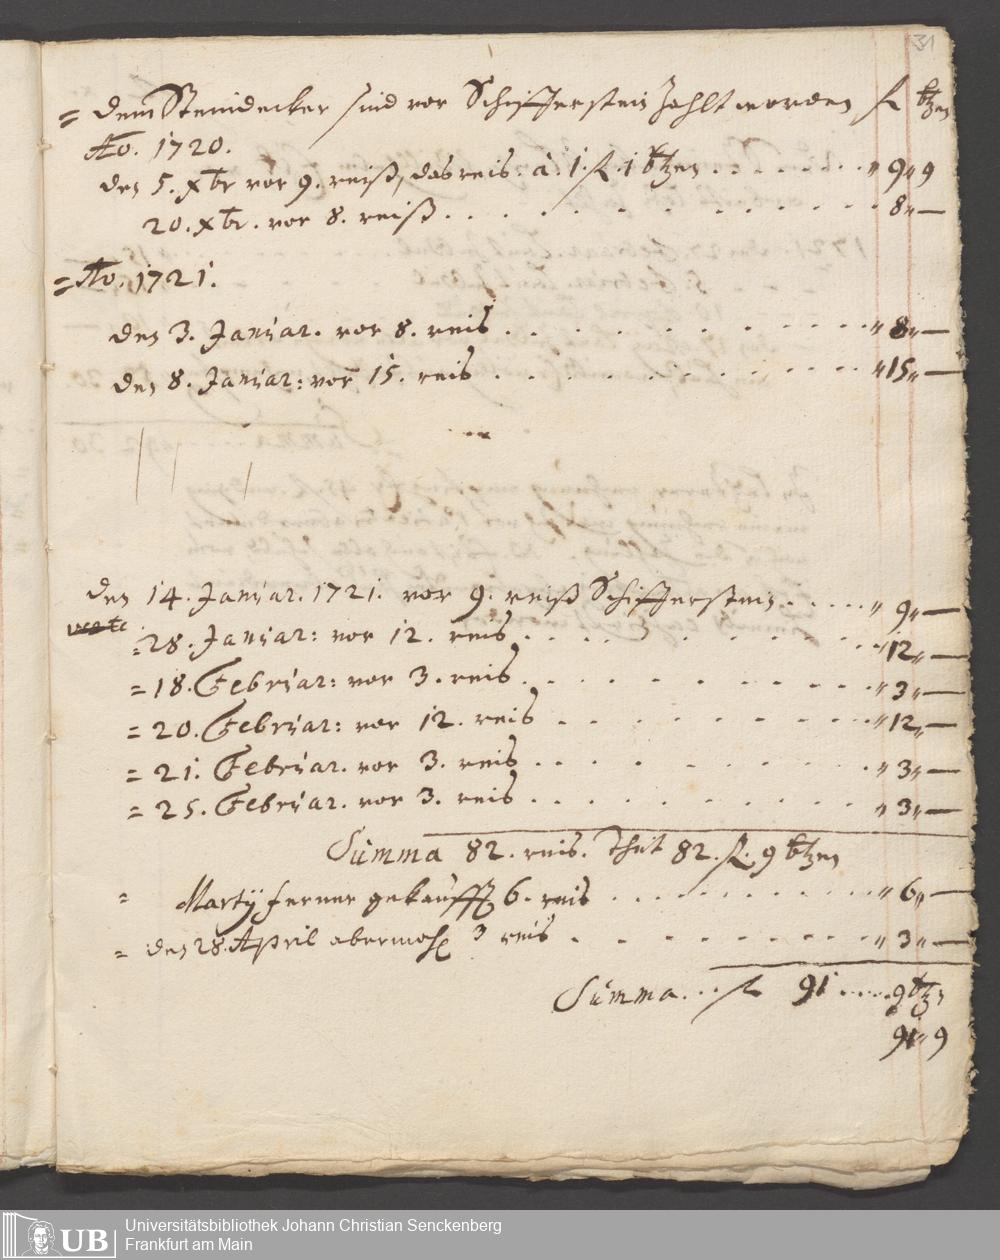 31
= dem Steindecker sind vor Schifferstein Zahlt worden fl btzen
Ao. 1720.
den 5. xbr vor 9. reiß, das reis: a: 1. fl. 1 btzen . . . . . . . " 9 " 9
20. xbr. vor 8. reiß . . . . . . . . . . . 8 " —
= Ao. 1721.
den 3. Januar. vor 8. reis . . . . . . . . . . . " 8 " —
den 8. Januar: vor 15. reis . . . . . . . . . . " 15 " —
den 14. Januar. 1721. vor 9. reiß Schifferstein . . . . . " 9 " —
= 28. Januar: vor 12. reis . . . . . . . . . " 12 " —
= 18. Februar: vor 3. reis . . . . . . . . . " 3 " —
= 20. Februar: vor 12. reis . . . . . . . . . " 12 " —
= 21. Februar. vor 3. reis . . . . . . . . . " 3 " —
= 25. Februar. vor 3. reis . . . . . . . . . " 3 " —
Summa 82. reis. Thut 82. fl. 9 btzen
= Martij ferner gekaufft 6. reis . . . . . . . . . " 6 " —
= den 28. April abermahl 3 reis . . . . . . . . " 3 " —
Summa . . . fl 91 . . . . 9 btzn
91 " 9
UB
Universitätsbibliothek Johann Christian Senckenberg
Frankfurt am Main